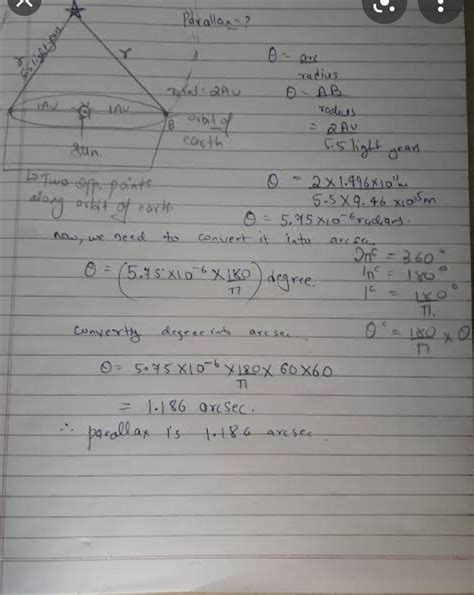 Parallax = ?
r
5.5 light year
r
1AU
1AU
Sun
Total = 2AU
B
orbit of
earth
↳ Two opp. points
along orbit of earth
θ = arc
radius
θ = AB
radius
= 2AU
5.5 light years
θ = 2 x 1.496 x 10¹¹m
5.5 x 9.46 x 10¹⁵m
θ = 5.75 x 10⁻⁶ radians.
now, we need to convert it into arcsec
θ = (5.75 x 10⁻⁶ x 180/π) degree.
2πᶜ = 360°
1πᶜ = 180°
1ᶜ = 180°
π
θᶜ = 180/π x θ
convertly degree into arcsec
θ = 5.75 x 10⁻⁶ x 180/π x 60 x 60
= 1.186 arcsec.
∴ parallax is 1.186 arcsec.